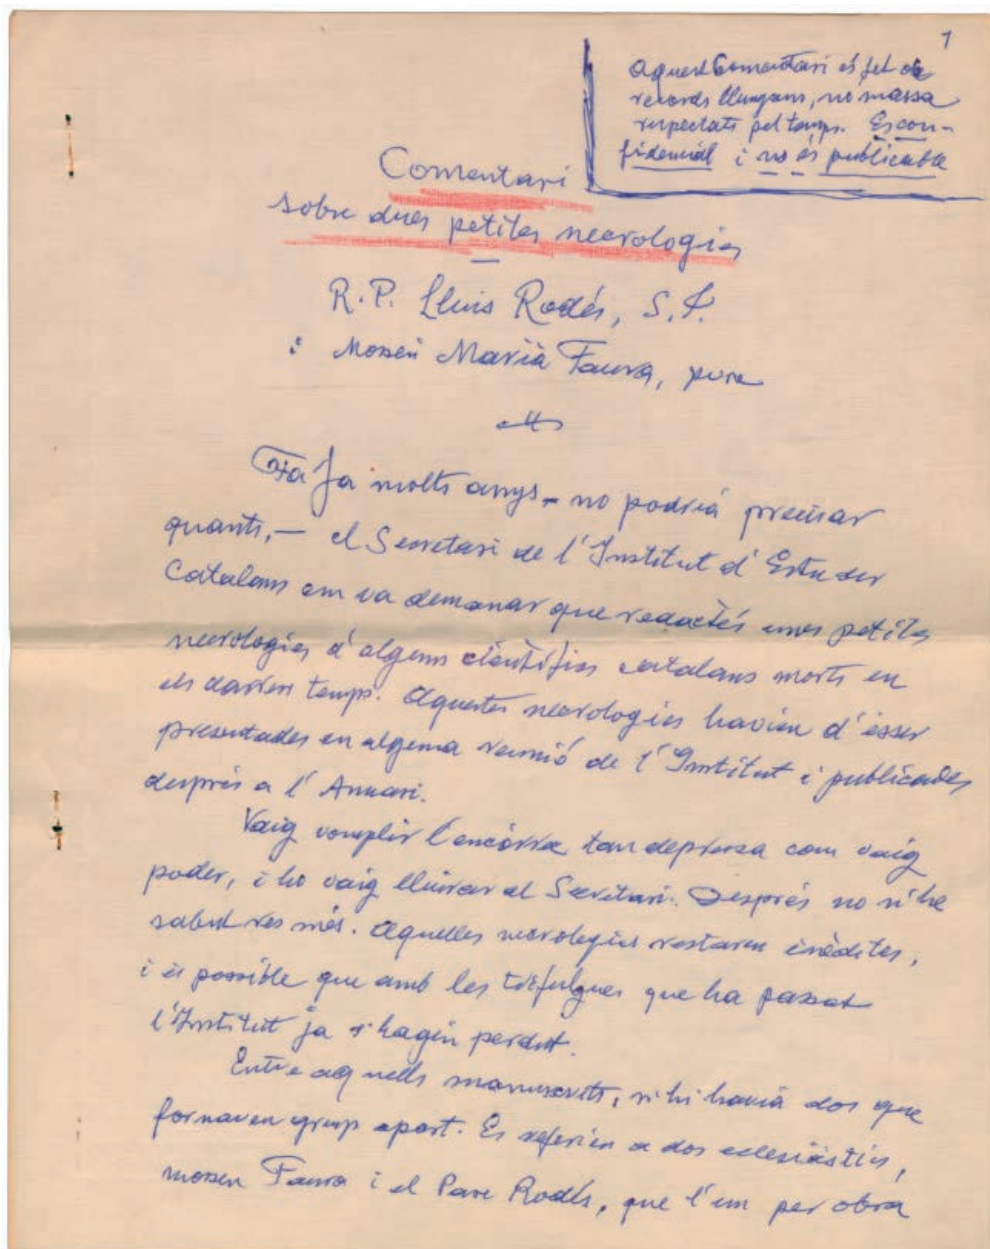 1
Aquest Comentari és fet de
records llunyans, no massa
respectats pel temps. Es con-
fidencial i no és publicable
Comentari
sobre dues petites necrologies
R.P. Lluis Rodés, S.J.
i Mossèn Marià Faura, pvre
Fa ja molts anys - no podria precisar
quants, - el Secretari de l'Institut d'Estudis
Catalans em va demanar que redactés unes petites
necrologies d'alguns científics catalans morts en
els darrers temps. Aquestes necrologies havien d'ésser
presentades en alguna reunió de l'Institut i publicades
després a l'Anuari.
Vaig complir l'encàrrec tan depressa com vaig
poder, i ho vaig lliurar al Secretari. Després no n'he
sabut res més. Aquelles necrologies restaren inèdites,
i és possible que amb les que ha passat
l'Institut ja s'hagin perdut.
Entre aquells manuscrits, n'hi havia dos que
formaven grup apart. Es referien a dos eclesiàstics,
mossen Faura i el Pare Rodés, que l'un per obra